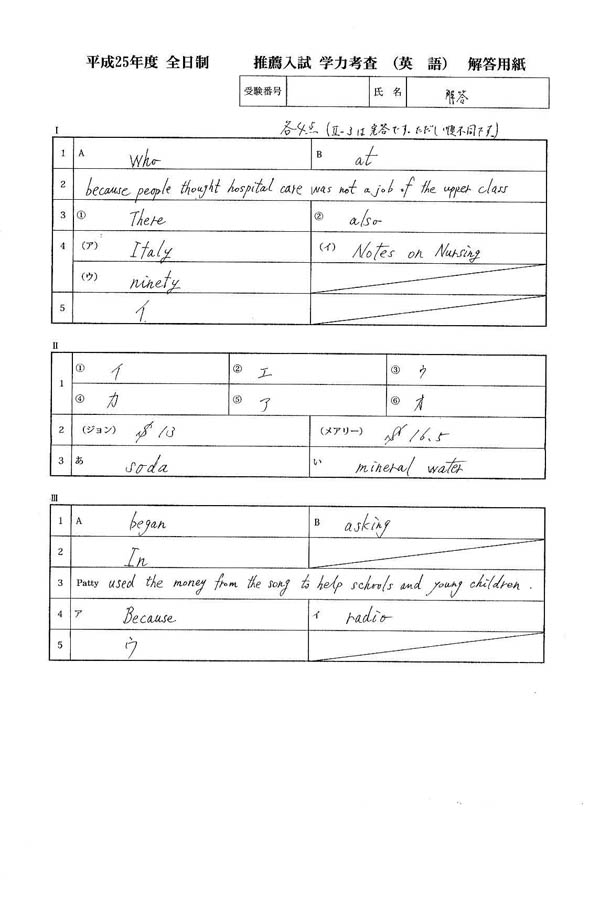 平成25年度 全日制 推薦入試 学力考査 (英 語) 解答用紙
受験番号 氏 名 解答
各4点 (Ⅱ-3は完答です。ただし順不同です。)
Ⅰ
1 A Who B at
2 because people thought hospital care was not a job of the upper class
3 ① There ② also
4 (ア) Italy (イ) Notes on Nursing
(ウ) ninety
5 イ
Ⅱ
1 ① イ ② エ ③ ウ
④ カ ⑤ ア ⑥ オ
2 (ジョン) $13 (メアリー) $16.5
3 あ soda い mineral water
Ⅲ
1 A began B asking
2 In
3 Patty used the money from the song to help schools and young children.
4 ア Because イ radio
5 ウ